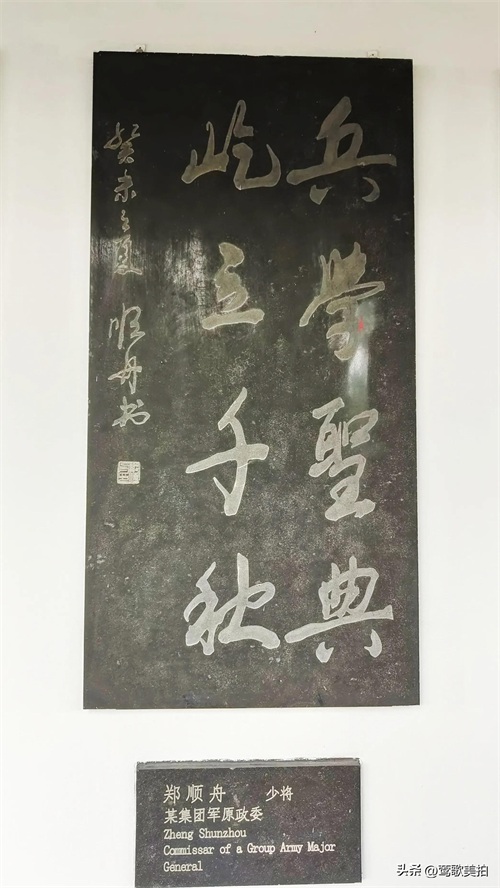 兵学聖典
屹立千秋
癸未之夏 顺舟书
郑顺舟 少将
某集团军原政委
Zheng Shunzhou
Commissar of a Group Army Major
General
头条 @莺歌美拍